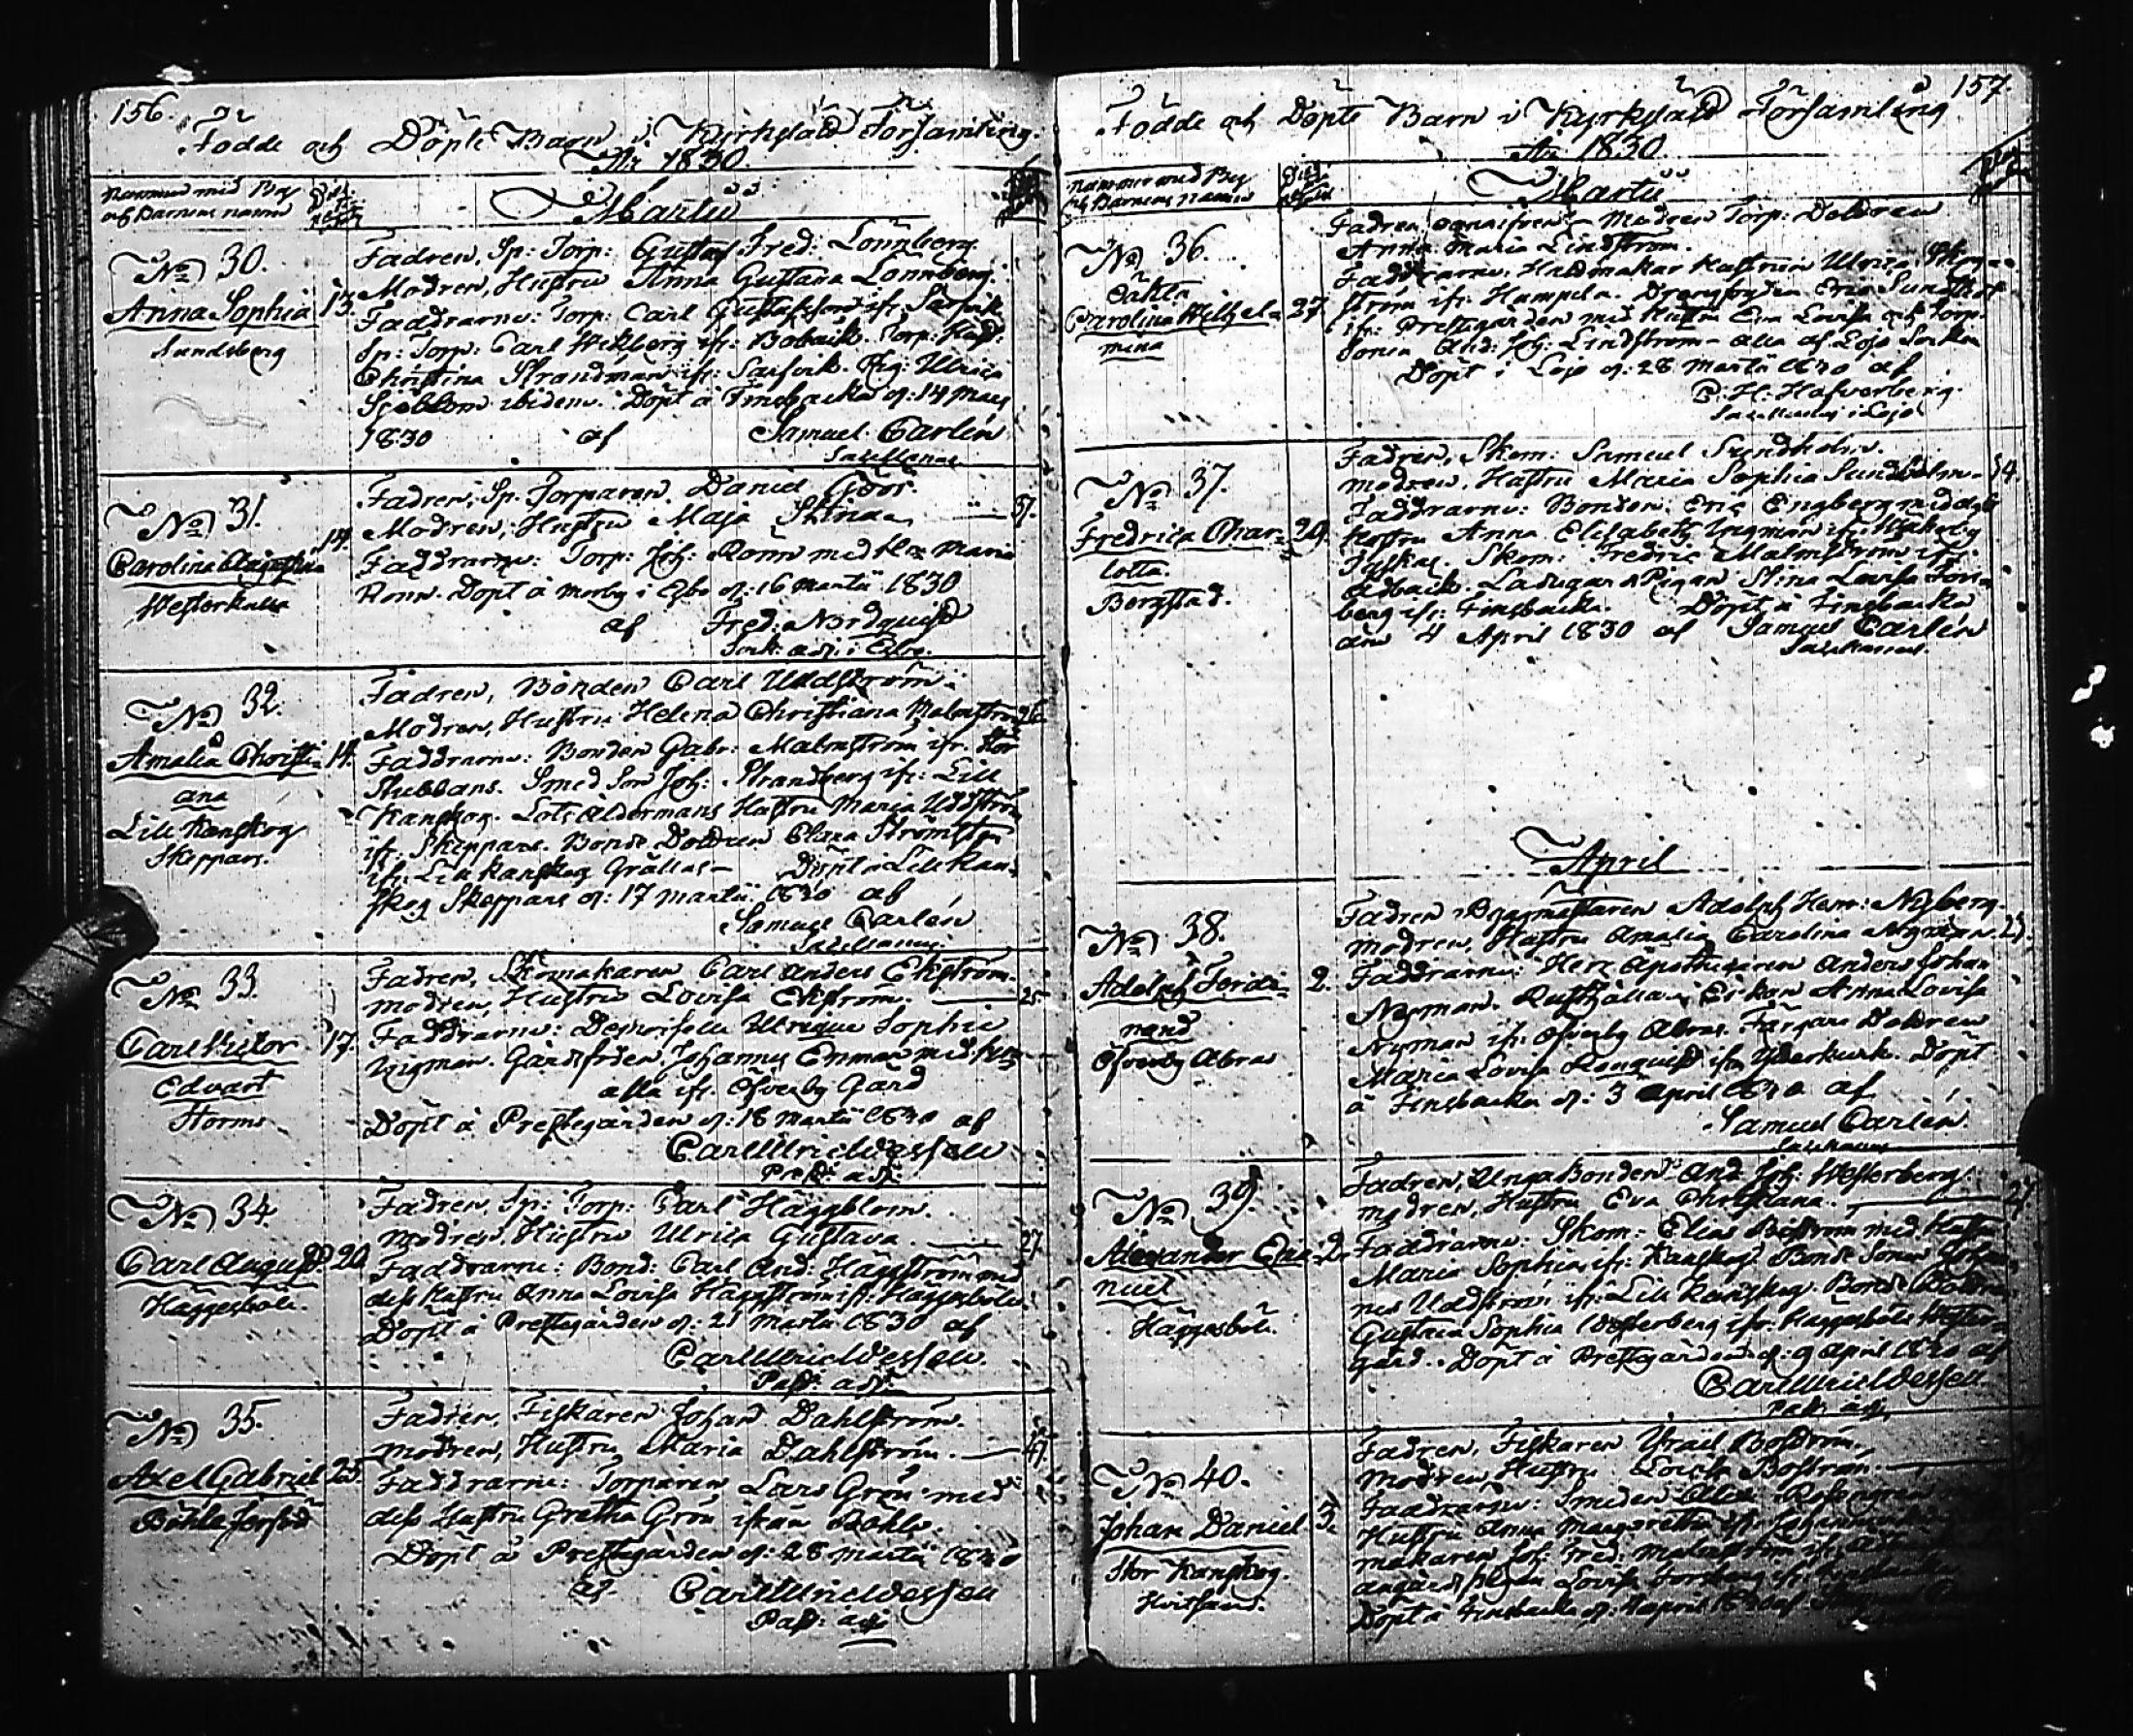 156.
Födde och Döpte Barn i Kyrkslätt Församling.
År 1830.
Nummer med By
och Barnens namn
Martii
No 30.
Anna Sophia 13.
Sundsberg
Fadren, Sp: Torp: Gustaf Fred: Lönnberg.
Modren, Hustru Anna Gustava Lönnberg.
Faddrarne: Torp: Carl Gustafsson ifr: Sarfvik
Sp: Torp: Carl Wikberg ifr: Bobäck. Torp: Hust:
Christina Strandman ifr: Sarfvik. Pig: Ulrica
Sjöblom ibidem. Döpt å Finsbacka d: 14 Mars
1830 af Samuel Carlén
Sacellanus
No 31.
Carolina 14.
Westerkulla
Fadren, Sp. Torparen Daniel
Modren, Hustru Maja Stina 37.
Faddrarne: Torp: Joh: Rönn med Maria
Rönn. Döpt å Morby i Esbo d: 16 Martii 1830
af Fred: Nordquist
Sock: adj: i Esbo.
No 32.
Amalia Christi- 14.
ana
Lill Kanskog
Skeppars.
Fadren, Bonden Carl Uddström.
Modren, Hustru Helena Christiana Malmström 26.
Faddrarne: Bonden Gabr: Malmström ifr. Stor
Stubbans. Smed Son Joh: Strandberg ifr: Lill
Kanskog. Lots Åldermans Hustru Maria Uddström
ifr. Skeppars. Bonde Dottren Clara Strömsten
ifr: Lill Kanskog Grällas — Döpt å Lill Kan-
skog Skeppars d: 17 Martii 1830 af
Samuel Carlén
Sacellanus.
No 33.
Carl Victor 17.
Edvart
Storms
Fadren, Skomakaren Carl Anders Ekström.
Modren, Hustru Lovisa Ekström. 25
Faddrarne: Demoiselle Ulrique Sophie
Wigman. Gårdsfogden Johannes Enman med
alla ifr: Öfverby Gård
Döpt å Prestegården d: 18 Martii 1830 af
Carl Ulric Wessell
Past: adj:
No 34.
Carl August 20.
Häggesböle.
Fadren, Sp: Torp: Carl Häggblom.
Modren, Hustru Ulrica Gustava. 27.
Faddrarne: Bond: Carl And: Häggström med
dess Hustru Anna Lovisa Häggström ifr: Häggesböle.
Döpt å Prestegården d: 21 Martii 1830 af
Carl Ulric Wessell.
Past: adj:
No 35.
Axel Gabriel 25.
Båhle
Fadren, Fiskaren Johan Dahlström.
Modren, Hustru Maria Dahlström. 41.
Faddrarne: Torparen Lars Grön med
dess Hustru Gretha Grön ifrån Båhle.
Döpt å Prestegården d: 28 Martii 1830
af Carl Ulric Wessell
Past: adj
157.
Födde och Döpte Barn i Kyrkslätt Församling
År 1830.
Nummer med By
och Barnens namn
Martii
No 36.
Oäkta
Carolina Wilhel- 27.
mina
Fadren Modren Torp: Dottren
Anna Maria Lindström.
Faddrarne. Hattmakar Hustrun Ulrica
ström ifr: Humpila. Drengfogden Eric Sundstr
ifr: Prestegården med Hustru Eva Lovisa och Torp-
Sonen And: Joh: Lindström — alla af Lojo Sockn
Döpt i Lojo d: 28 Martii 1830 af
C: H: Hafverberg.
Sacellanus i Lojo
No 37.
Fredrica Char- 29.
lotta.
Bergstad.
Fadren, Skom: Samuel Sundholm.
Modren, Hustru Maria Sophia Sundholm. 34.
Faddrarne: Bonden Eric Engberg med dess
Hustru Anna Elisabeth Ingman ifr:
Tyskas. Skom: Fredric Malmström ifr:
Edback. Ladugårds Pigan Stina Lovisa Fors-
berg ifr: Finsbacka. Döpt å Finsbacka
den 4 April 1830 af Samuel Carlén
Sacellanus.
April
No 38.
Adolph Ferdi- 2.
nand
Öfverby Abras
Fadren Byggmästaren Adolph Herm: Nyberg.
Modren, Hustru Amalia Carolina Nyman. 23.
Faddrarne: Herr Apothecaren Anders Johan
Nyman. Rusthållar Enkan Anna Lovisa
Nyman ifr: Öfverby Abras. Färgare Dottren
Maria Lovisa Renquist ifr: Ytterkurk. Döpt
å Finsbacka d: 3 April 1830 af
Samuel Carlén.
Sacellanus
No 39.
Alexander Ema- 2.
nuel
Häggesböle.
Fadren, Unga Bonden And: Joh: Westerberg.
Modren, Hustru Eva Christiana. 27.
Faddrarne: Skom: Elias Boström med Hustru
Maria Sophia ifr: Kanskog. Bonde Sonen Johan-
nes Uddström ifr: Lill Kanskog. Bonde Dottren
Gustava Sophia Westerberg ifr: Häggesböle Wester-
gård. Döpt å Prestegården d: 9 April 1830 af
Carl Ulric Wessell.
Past: adj:
No 40.
Johan Daniel 3.
Stor Kanskog.
Hvitsand.
Fadren, Fiskaren Israël Boström.
Modren, Hustru Lovisa Boström.
Faddrarne: Smeden Rosengren
Hustru Anna Margaretha ifr:
makaren Joh: Fred: Malmström ifr:
Lovisa Forsberg ifr: Finsbacka
Döpt å Finsbacka d: April 1830 af Samuel